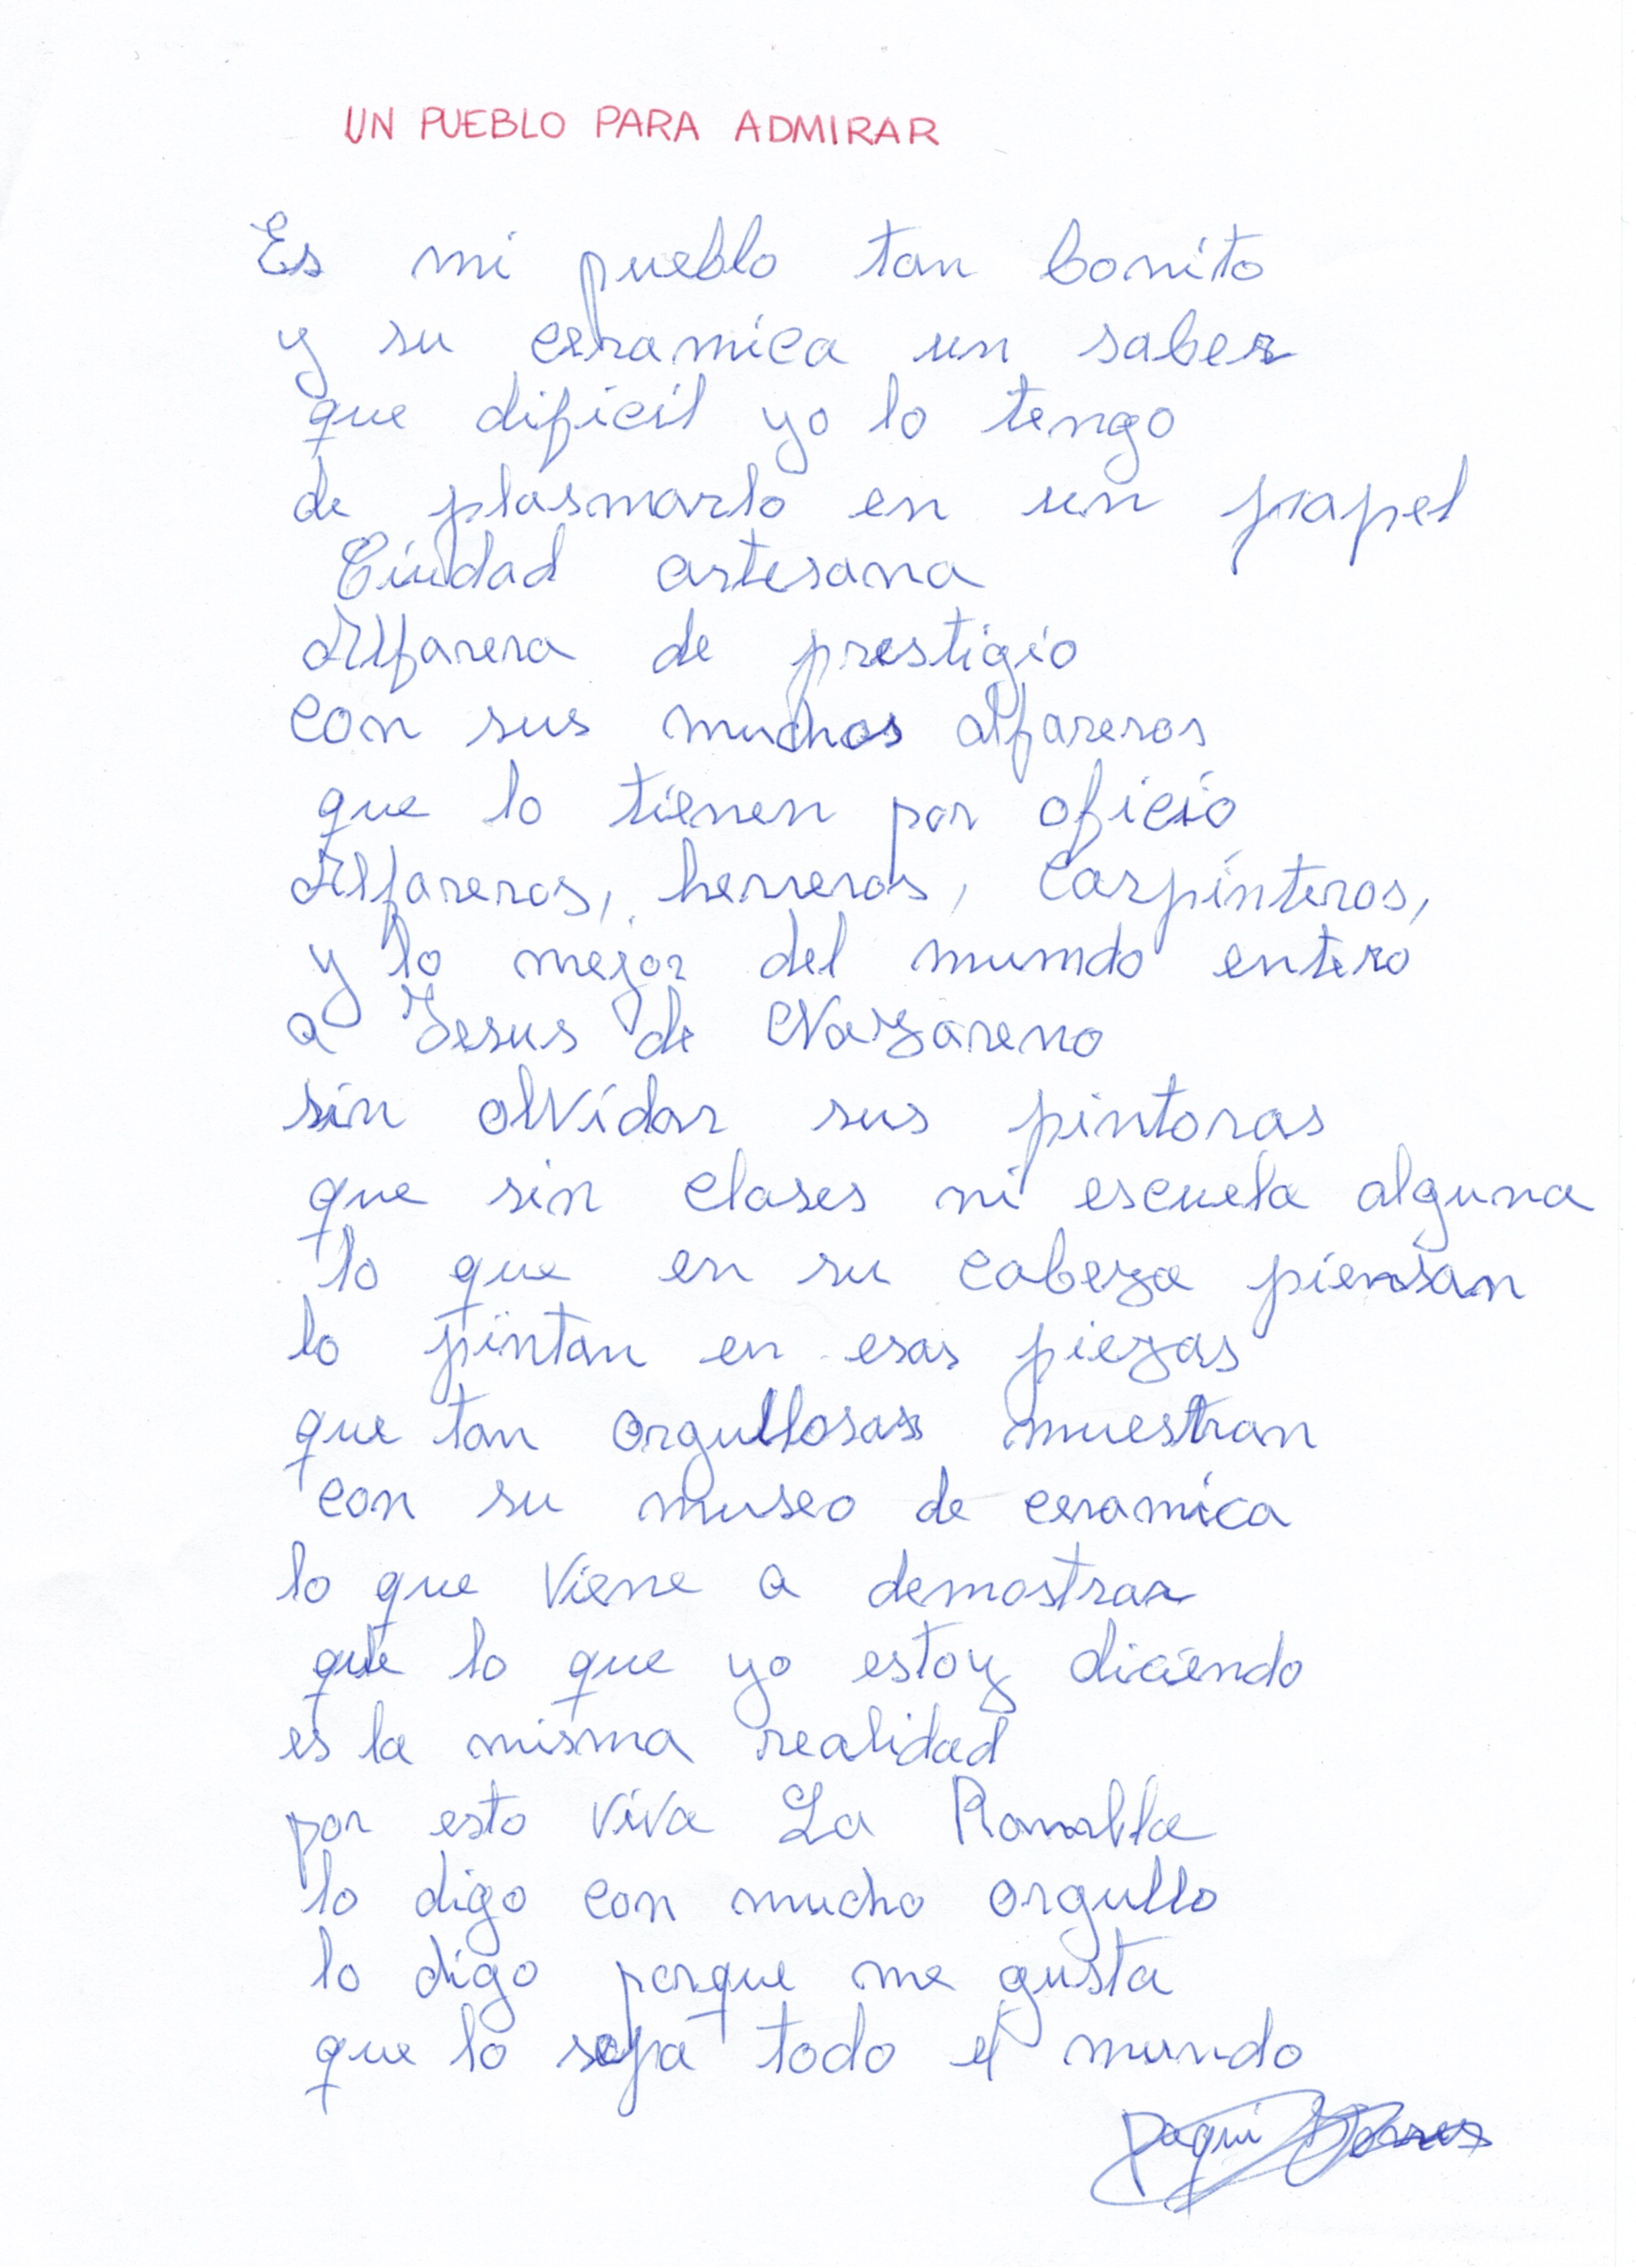 UN PUEBLO PARA ADMIRAR
Es mi pueblo tan bonito
y su ceramica un saber
que dificil yo lo tengo
de plasmarlo en un papel
Ciudad artesana
Alfarera de prestigio
con sus muchos alfareros
que lo tienen por oficio
Alfareros, herreros, carpinteros,
y lo mejor del mumdo entero
a Jesus de Nazareno
sin olvidar sus pintoras
que sin clases ni escuela alguna
lo que en su cabeza piensan
lo pintan en esas piezas
que tan orgullosas muestran
con su museo de ceramica
lo que viene a demostrar
que lo que yo estoy diciendo
es la misma realidad
por esto viva La Rambla
lo digo con mucho orgullo
lo digo porque me gusta
que lo sepa todo el mundo
Paqui